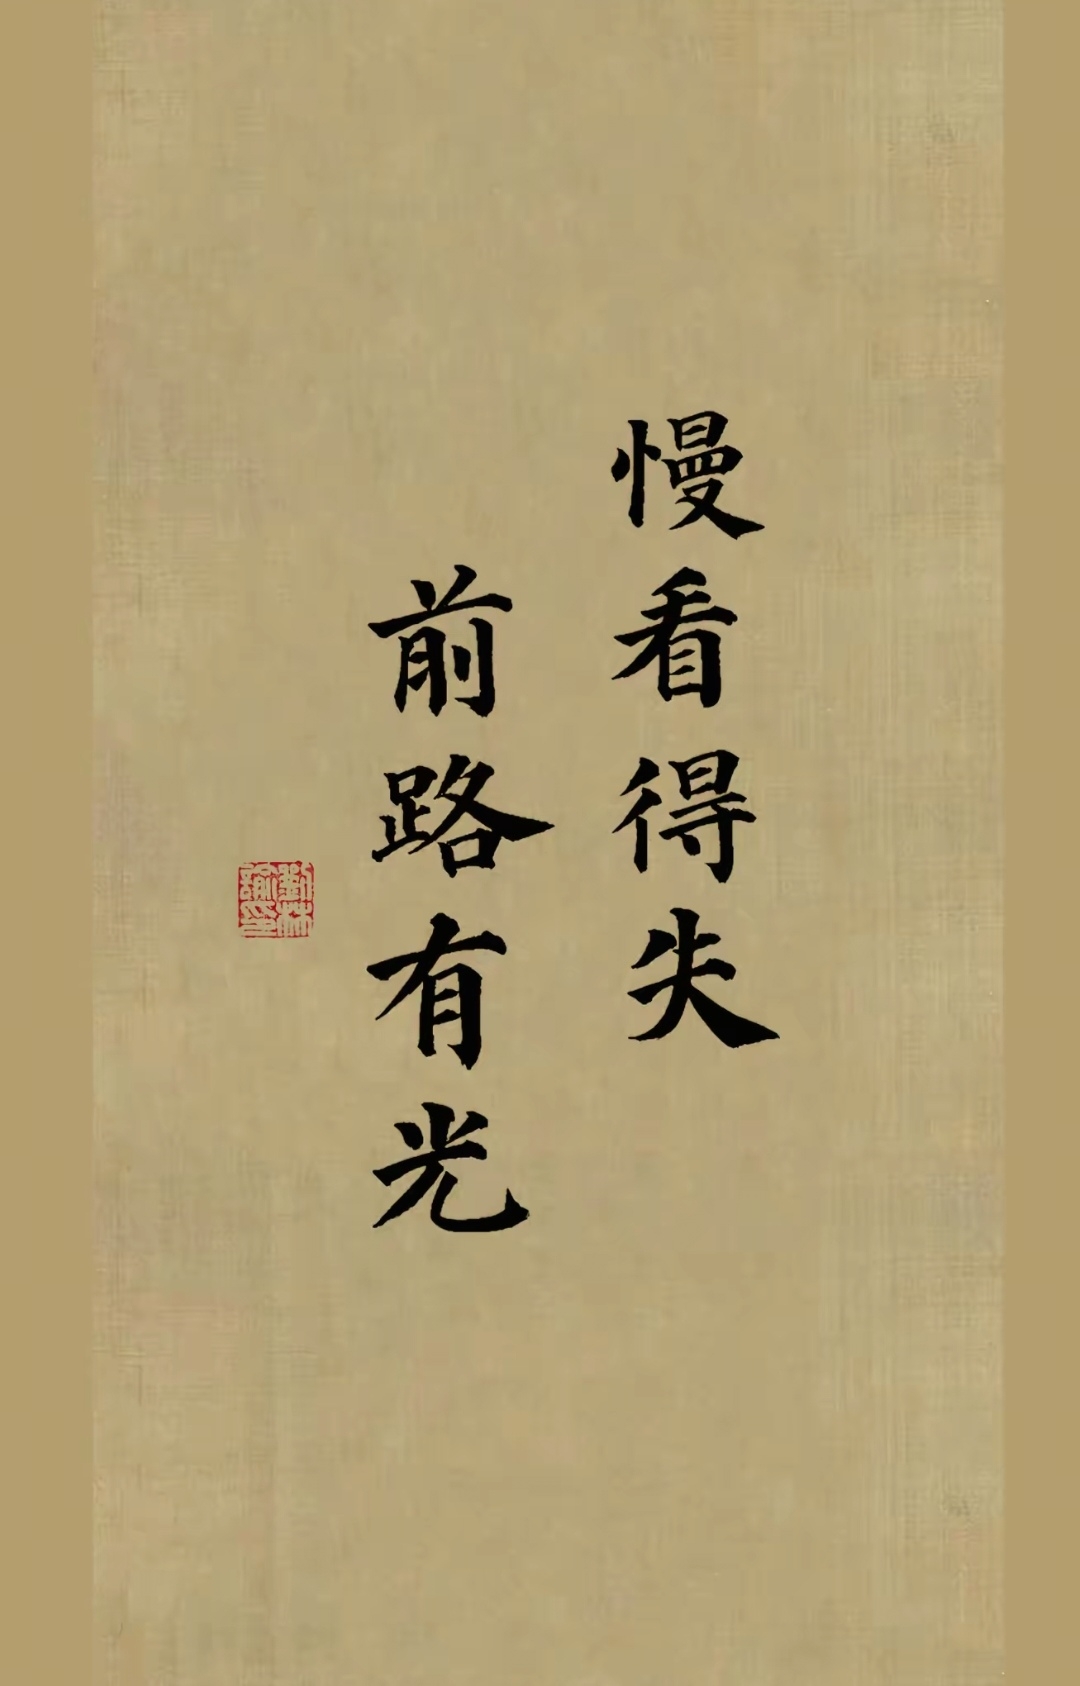 慢看得失
前路有光